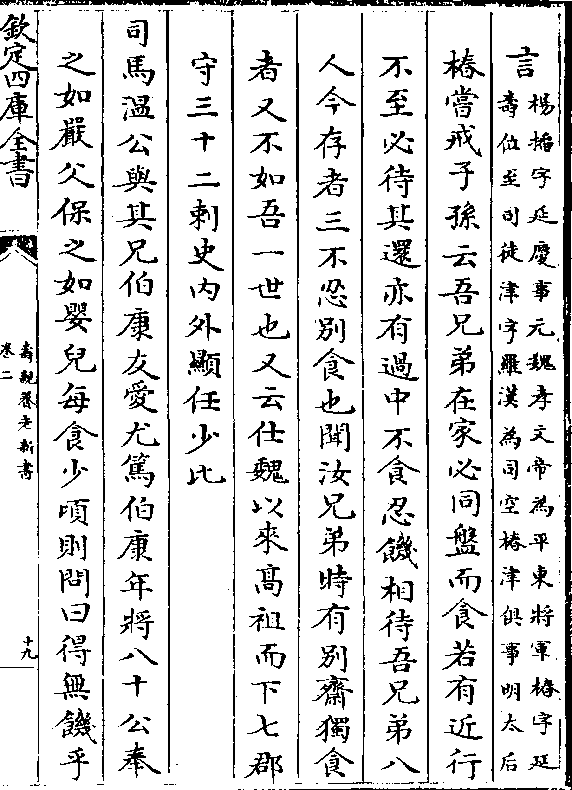 言
楊播字延慶事元魏孝文帝為平東將軍椿字延
壽位至司徒津字羅漢為司空椿津俱事明太后
椿嘗戒子孫云吾兄弟在家必同盤而食若有近行
不至必待其還亦有過中不食忍饑相待吾兄弟八
人今存者三不忍別食也聞汝兄弟時有別齋獨食
者又不如吾一世也又云仕魏以來髙祖而下七郡
守三十二刺史内外顯任少比
司馬温公與其兄伯康友愛尤篤伯康年將八十公奉
之如嚴父保之如嬰兒每食少頃則問曰得無饑乎
欽定四庫全書
壽親養老新書
卷二
十九